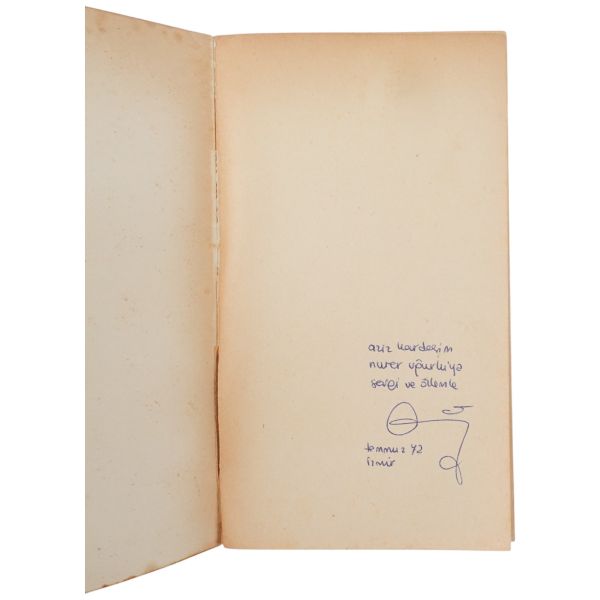 aziz kardeşim
nurer uğurlu'ya
sevgi ve özlemle
temmuz 72
izmir